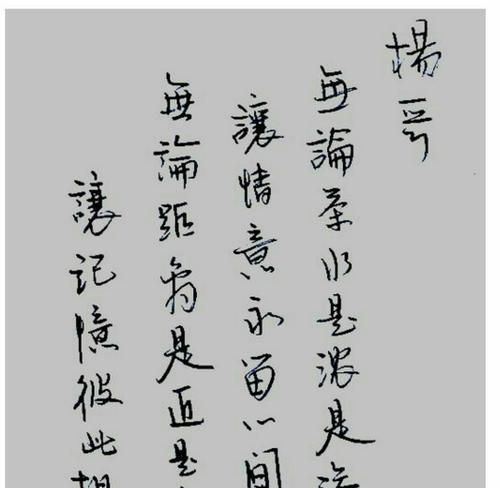 楊哥
無論茶水是濃是
讓情意永留心間
無論距离是近是
讓記憶彼此相